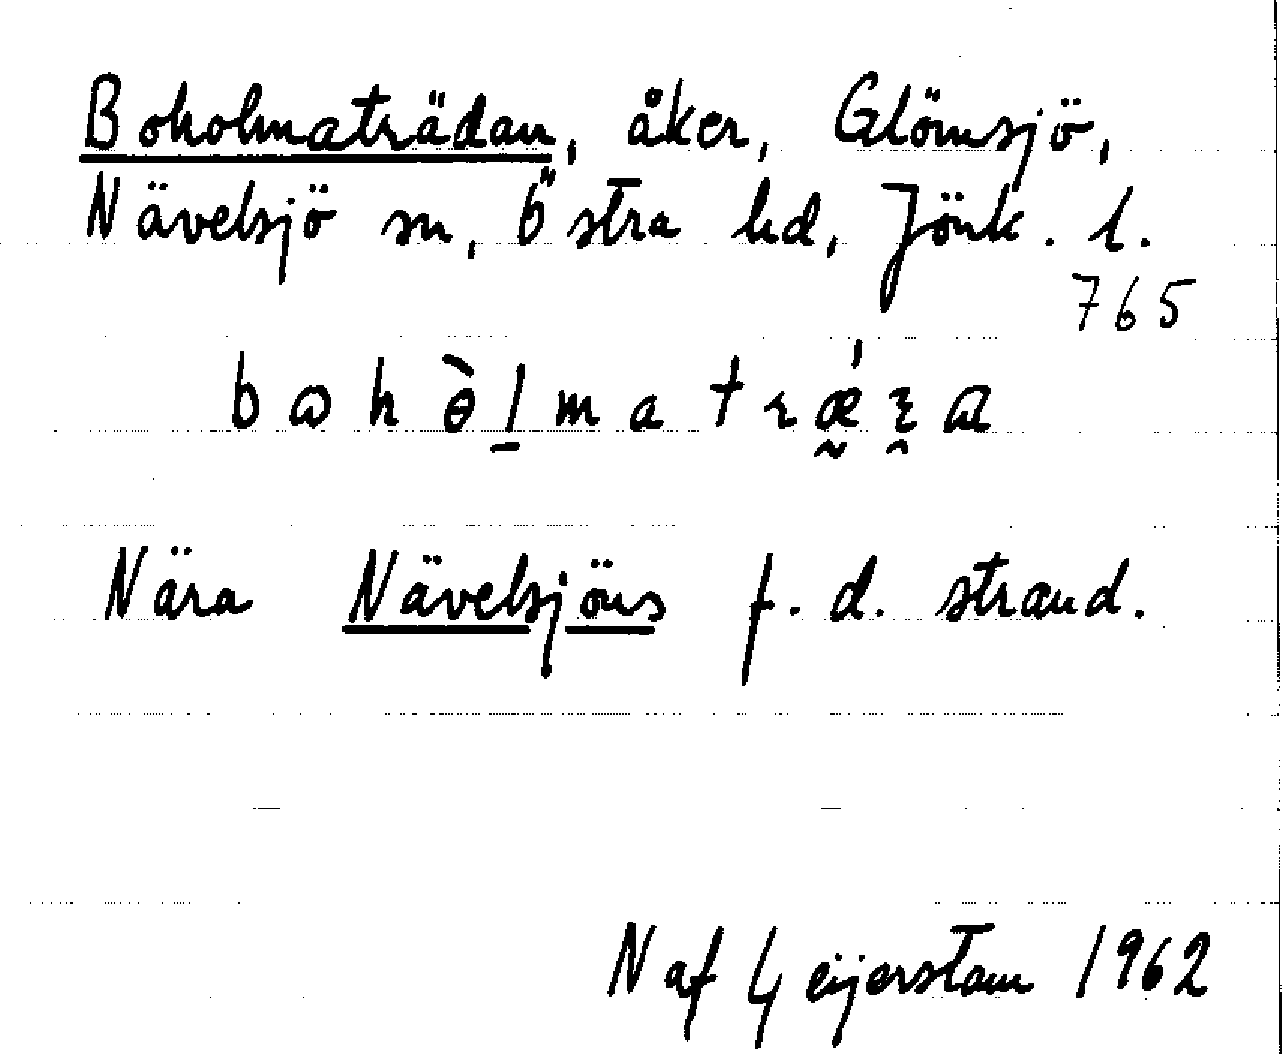 Boholmaträdan, åker, Glömsjö,
Nävelsjö sn, Östra hd, Jönk. l.
765
Nära Nävelsjöns f. d. strand.
N af Geijerstam 1962